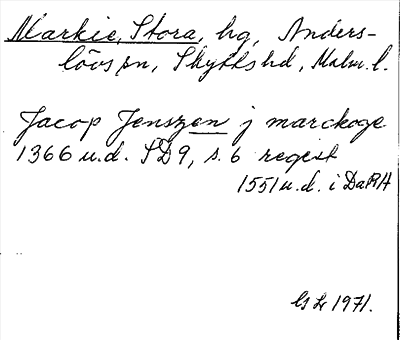 Markie, Stora, hg, Anders-
lövs sn, Skytts hd, Malm. l.
Jacop Jenszen j marckoge
1366 u.d. SD9, s. 6 regest
1551 u.d. i DaRA
1971.